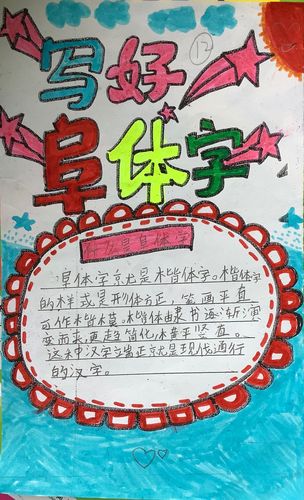 写好
12
阜体字
什么是阜体字
阜体字京尤是楷体字。楷体字
的样式是形体方正，笔画平直
可作楷模。楷体由隶书逐渐演
变而来，更趋简化，横平竖直。
这种汉字立岩正京尤是现代通行
的汉字。